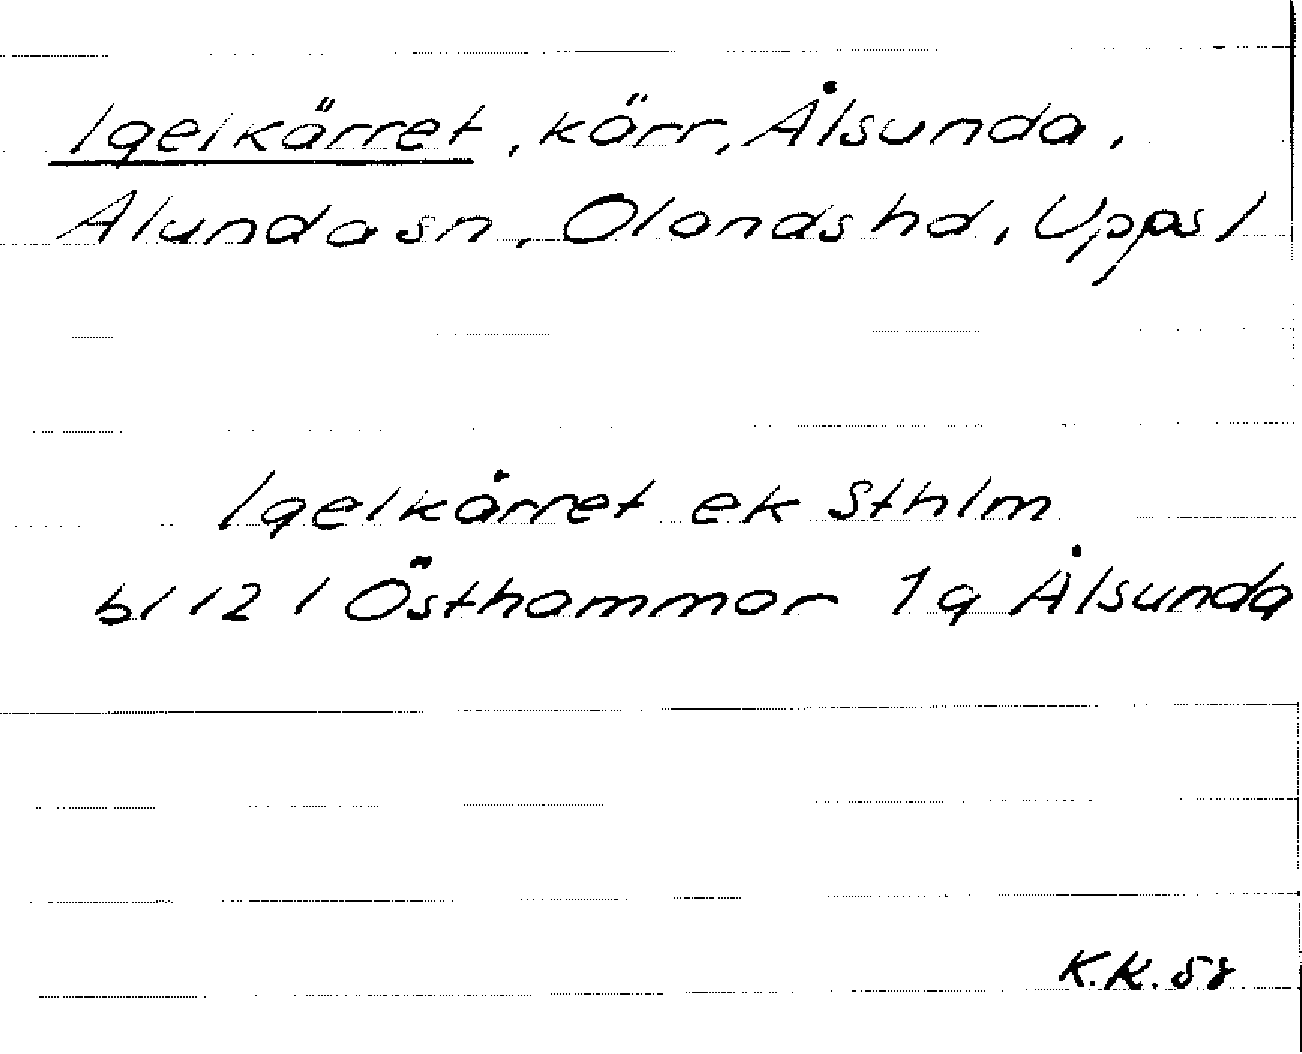 Igelkärret, kärr, Ålsunda,
Alunda sn, Olands hd, Uppsl
Igelkärret ek Sthlm
bl 12 1 Östhammar 1 g Ålsunda
K.K. 58